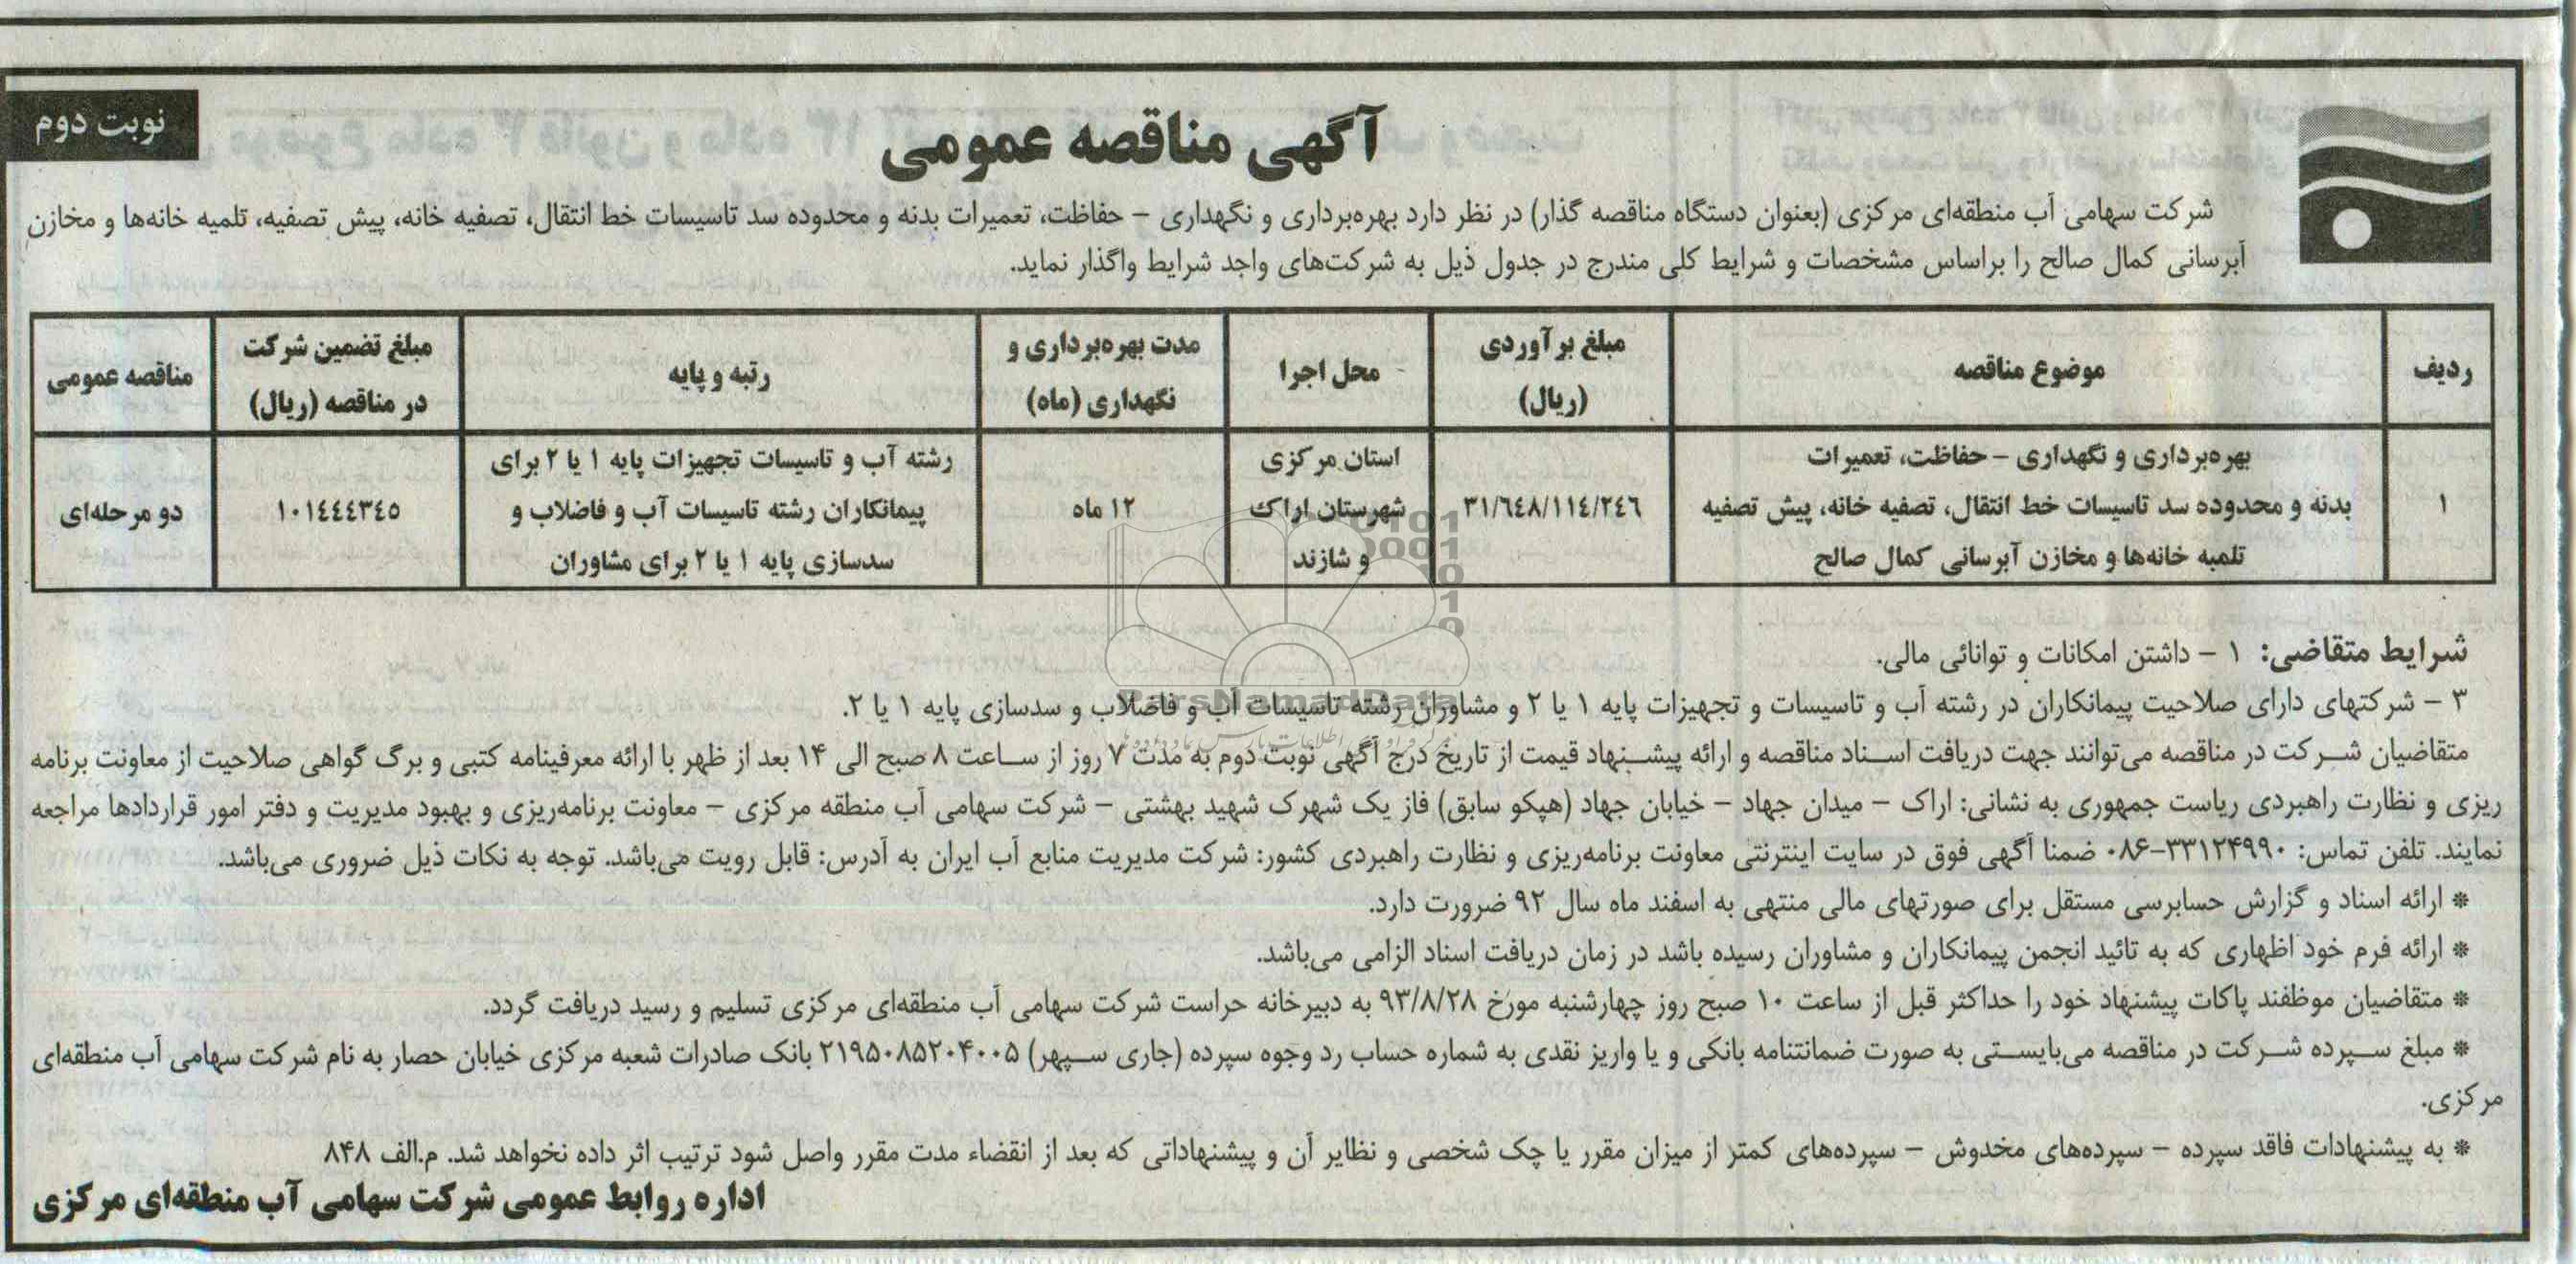 نوبت دوم
آگهی مناقصه عمومی
شرکت سهامی آب منطقه‌ای مرکزی (بعنوان دستگاه مناقصه گذار) در نظر دارد بهره‌برداری و نگهداری – حفاظت، تعمیرات بدنه و محدوده سد تاسیسات خط انتقال، تصفیه خانه، پیش تصفیه، تلمیه خانه‌ها و مخازن
آبرسانی کمال صالح را براساس مشخصات و شرایط کلی مندرج در جدول ذیل به شرکت‌های واجد شرایط واگذار نماید.
ردیف
موضوع مناقصه
مبلغ برآوردی
(ریال)
محل اجرا
مدت بهره‌برداری و
نگهداری (ماه)
رتبه و پایه
مبلغ تضمین شرکت
در مناقصه (ریال)
مناقصه عمومی
۱
بهره‌برداری و نگهداری – حفاظت، تعمیرات
بدنه و محدوده سد تاسیسات خط انتقال، تصفیه خانه، پیش تصفیه
تلمبه خانه‌ها و مخازن آبرسانی کمال صالح
۳۱/٦٤۸/۱۱٤/۲٤٦
استان مرکزی
شهرستان اراک
و شازند
۱۲ ماه
رشته آب و تاسیسات تجهیزات پایه ۱ یا ۲ برای
پیمانکاران رشته تاسیسات آب و فاضلاب و
سدسازی پایه ۱ یا ۲ برای مشاوران
۱۰۱٤٤٤۳٤٥
دو مرحله‌ای
شرایط متقاضی: ۱ – داشتن امکانات و توانائی مالی.
۳ – شرکتهای دارای صلاحیت پیمانکاران در رشته آب و تاسیسات و تجهیزات پایه ۱ یا ۲ و مشاوران رشته تاسیسات آب و فاضلاب و سدسازی پایه ۱ یا ۲.
متقاضیان شرکت در مناقصه می‌توانند جهت دریافت اسناد مناقصه و ارائه پیشنهاد قیمت از تاریخ درج آگهی نوبت دوم به مدت ۷ روز از ساعت ۸ صبح الی ۱۴ بعد از ظهر با ارائه معرفینامه کتبی و برگ گواهی صلاحیت از معاونت برنامه
ریزی و نظارت راهبردی ریاست جمهوری به نشانی: اراک – میدان جهاد – خیابان جهاد (هپکو سابق) فاز یک شهرک شهید بهشتی – شرکت سهامی آب منطقه مرکزی – معاونت برنامه‌ریزی و بهبود مدیریت و دفتر امور قراردادها مراجعه
نمایند. تلفن تماس: ۳۳۱۲۴۹۹۰-۰۸۶ ضمنا آگهی فوق در سایت اینترنتی معاونت برنامه‌ریزی و نظارت راهبردی کشور: شرکت مدیریت منابع آب ایران به آدرس: قابل رویت می‌باشد. توجه به نکات ذیل ضروری می‌باشد.
* ارائه اسناد و گزارش حسابرسی مستقل برای صورتهای مالی منتهی به اسفند ماه سال ۹۲ ضرورت دارد.
* ارائه فرم خود اظهاری که به تائید انجمن پیمانکاران و مشاوران رسیده باشد در زمان دریافت اسناد الزامی می‌باشد.
* متقاضیان موظفند پاکات پیشنهاد خود را حداکثر قبل از ساعت ۱۰ صبح روز چهارشنبه مورخ ۹۳/۸/۲۸ به دبیرخانه حراست شرکت سهامی آب منطقه‌ای مرکزی تسلیم و رسید دریافت گردد.
* مبلغ سپرده شرکت در مناقصه می‌بایستی به صورت ضمانتنامه بانکی و یا واریز نقدی به شماره حساب رد وجوه سپرده (جاری سپهر) ۲۱۹۵۰۸۵۲۰۴۰۰۵ بانک صادرات شعبه مرکزی خیابان حصار به نام شرکت سهامی آب منطقه‌ای
مرکزی.
* به پیشنهادات فاقد سپرده – سپرده‌های مخدوش – سپرده‌های کمتر از میزان مقرر یا چک شخصی و نظایر آن و پیشنهاداتی که بعد از انقضاء مدت مقرر واصل شود ترتیب اثر داده نخواهد شد. م.الف ۸۴۸
اداره روابط عمومی شرکت سهامی آب منطقه‌ای مرکزی
ParsNamadData